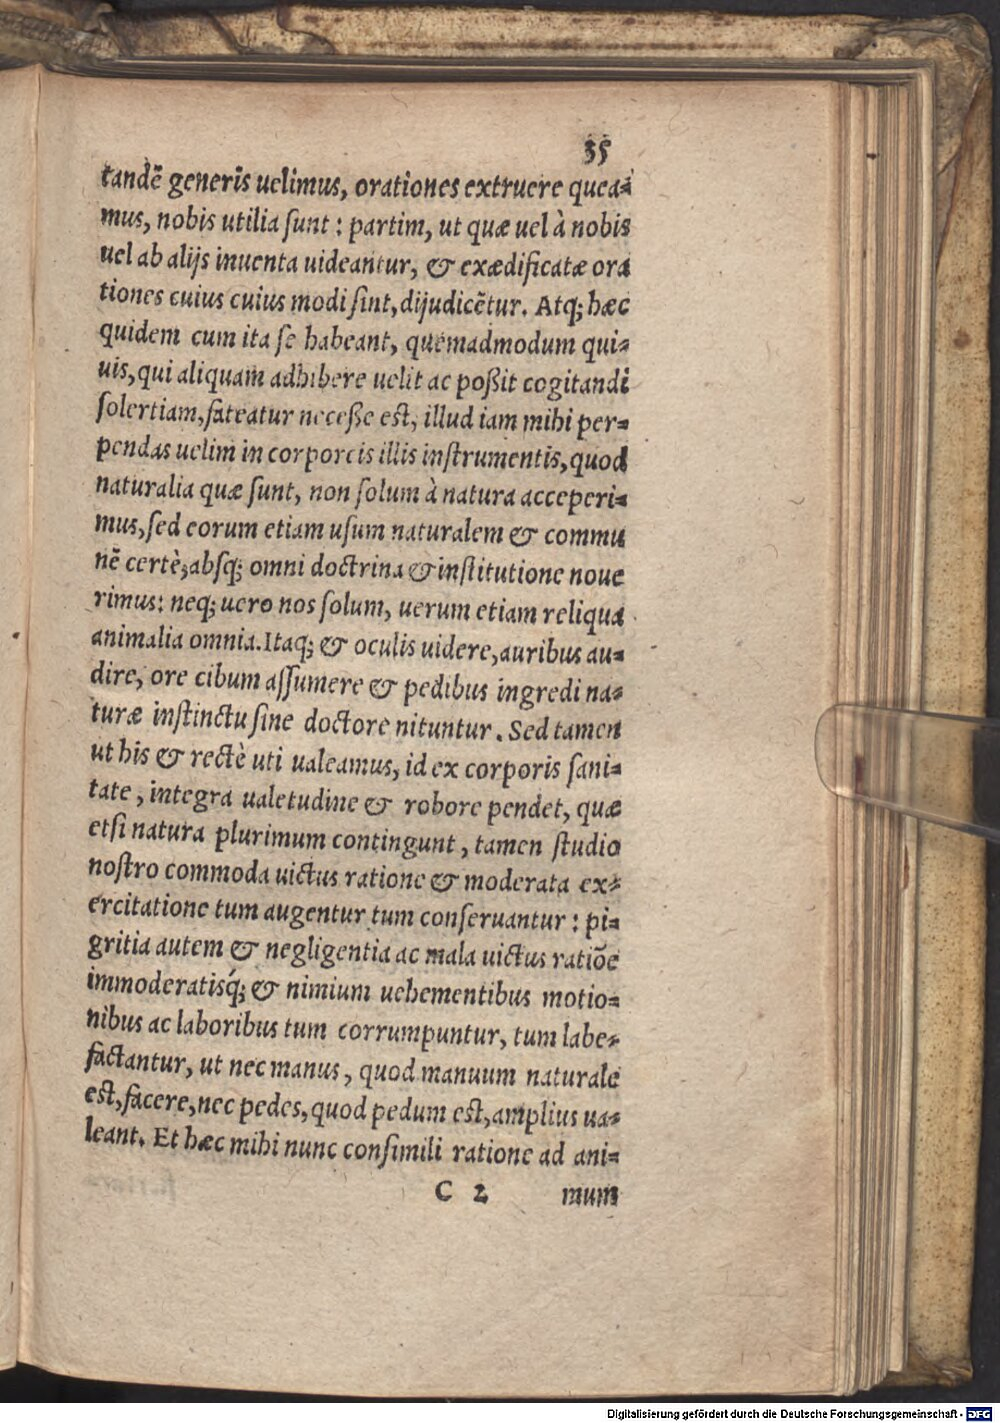 35
tandē generis uelimus, orationes extruere quea-
mus, nobis utilia ſunt : partim, ut quæ uel à nobis
uel ab alijs inuenta uideantur, & exædificatæ ora
tiones cuius cuius modi ſint, dijudicētur. Atq; hæc
quidem cum ita ſe habeant, quemadmodum qui-
uis, qui aliquam adhibere uelit ac poßit cogitandi
ſolertiam, fateatur neceße eſt, illud iam mihi per-
pendas uelim in corporcis illis inſtrumentis, quod
naturalia quæ ſunt, non ſolum à natura acceperi-
mus, ſed eorum etiam uſum naturalem & commu
nē certè, abſq; omni doctrina & inſtitutione noue
rimus: neq; uero nos ſolum, uerum etiam reliqua
animalia omnia. Itaq; & oculis uidere, auribus au-
dire, ore cibum aſſumere & pedibus ingredi na-
turæ inſtinctu ſine doctore nituntur. Sed tamen
ut his & rectè uti ualeamus, id ex corporis ſani-
tate, integra ualetudine & robore pendet, quæ
etſi natura plurimum contingunt, tamen ſtudio
noſtro commoda uictus ratione & moderata ex-
ercitatione tum augentur tum conſeruantur : pi-
gritia autem & negligentia ac mala uictus ratiōe
immoderatisq́; & nimium uehementibus motio-
nibus ac laboribus tum corrumpuntur, tum labe-
factantur, ut nec manus, quod manuum naturale
eſt, facere, nec pedes, quod pedum eſt, amplius ua-
leant. Et hæc mihi nunc conſimili ratione ad ani-
C 2 mum
Digitalisierung gefördert durch die Deutsche Forschungsgemeinschaft - DFG